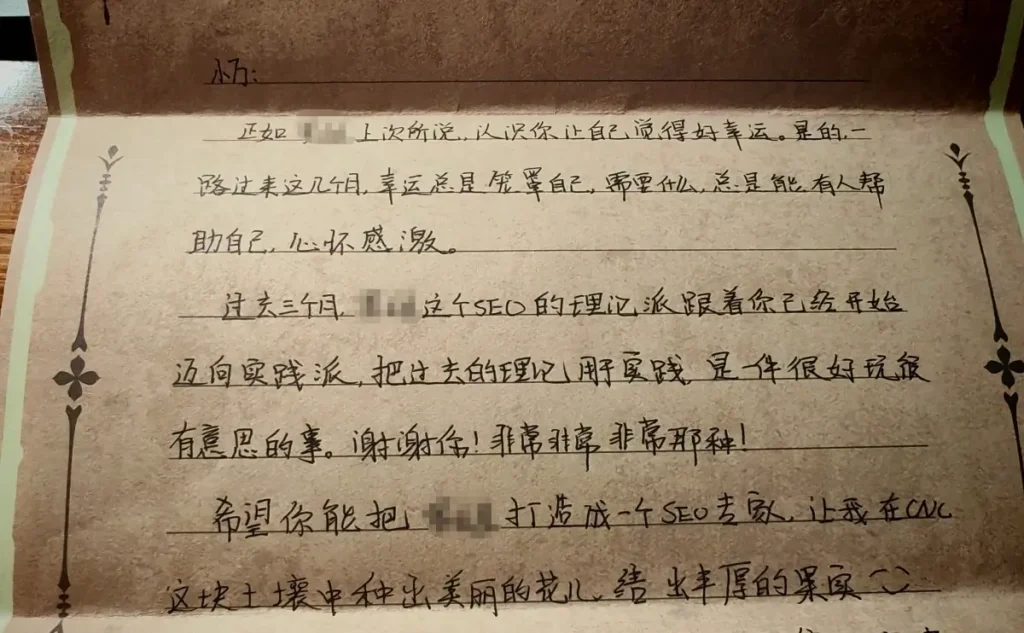 小万：
正如 上次所说，认识你让自己觉得好幸运。是的，一
路过来这几个月，幸运总是笼罩自己，需要什么，总是能有人帮
助自己，心怀感激。
过去三个月， 这个SEO的理论派跟着你已经开始
迈向实践派，把过去的理论用于实践，是一件很好玩很
有意思的事。谢谢你！非常非常非常那种！
希望你能把 打造成一个SEO专家，让我在CNC
这块土壤中种出美丽的花儿、结出丰厚的果实